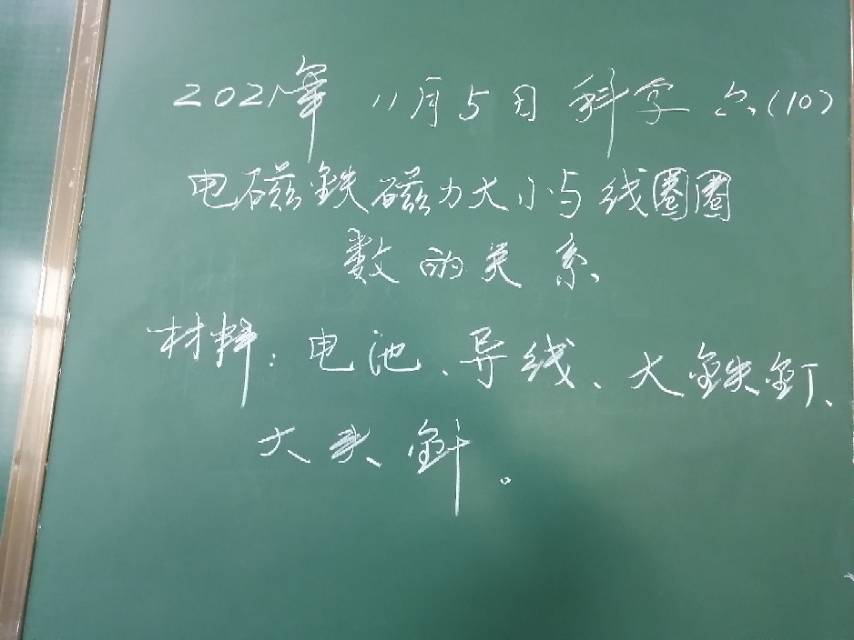 2021年 11月5日 科学 六(10)
电磁鉄磁力大小与线圈圈
数的关系
材料：电池、导线、大鉄釘、
大头針。